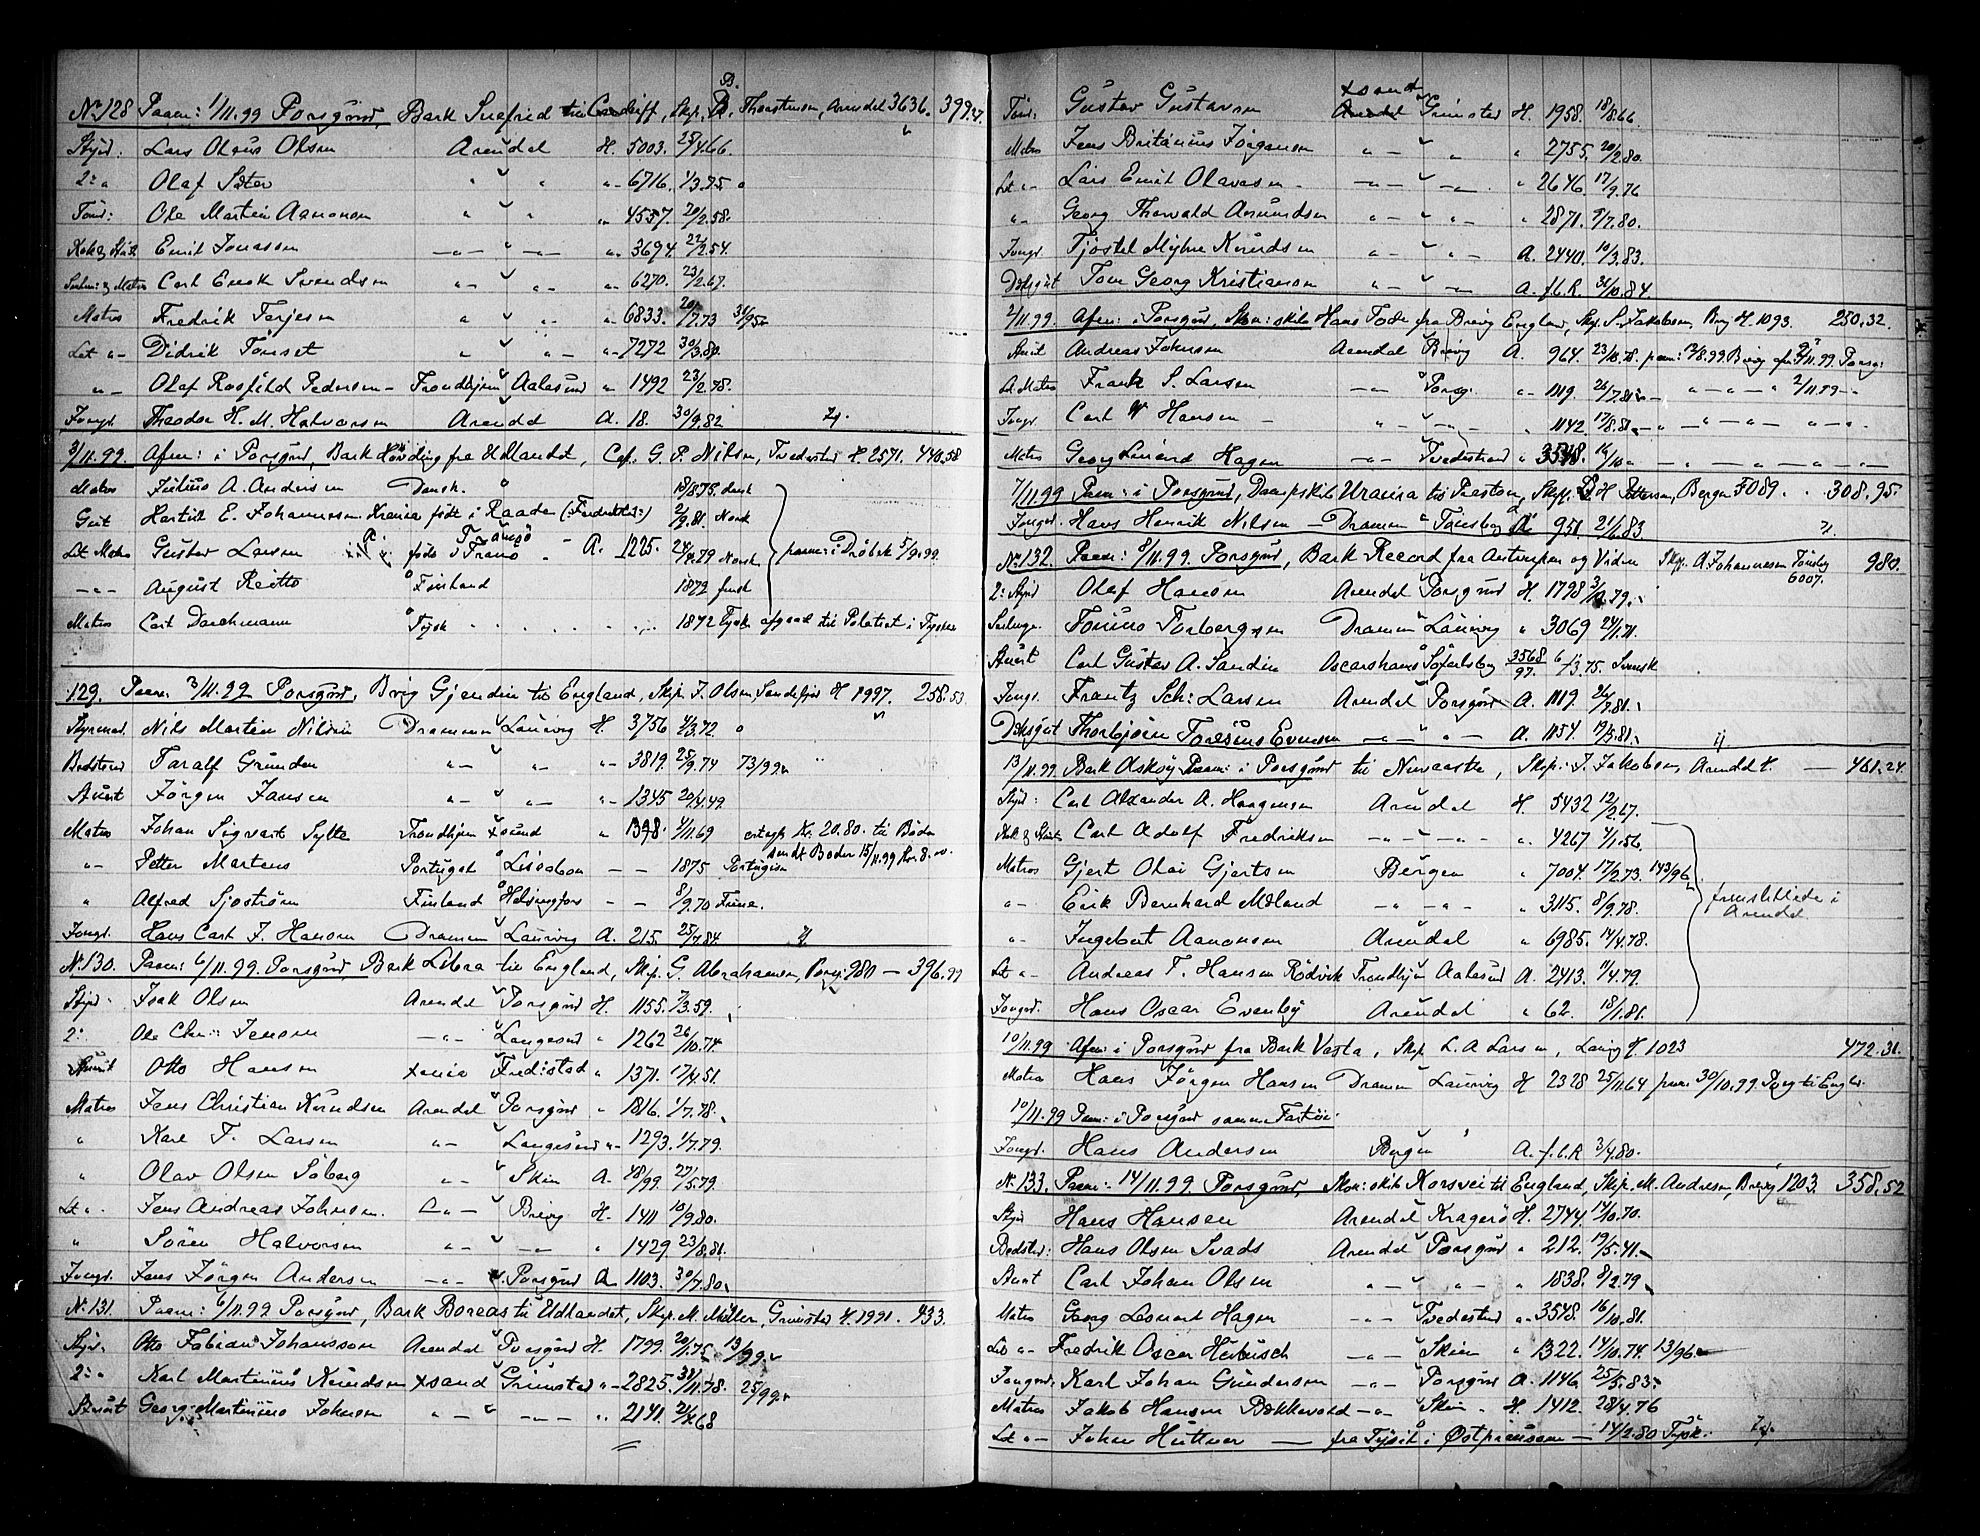 No 128 Paam: 1/11.99 Porsgrund, Bark Snefrid til Cardiff, Skp. B. Thorstensen, Arendal 3636. 399.
Styrd: Lars Olsen Arendal H. 5003. 25/4.66.
2: " Olaf Sæter " " " "- 6716. 1/3.75
Tømd: Ole Martin Aanonsen " " " 4557. 20/2.58.
Kok & Stuert Emil Jonassen —"— " —"— "- 3694. 22/2.54.
Seilm: & Matros Carl Enok Svendsen "- " " 6270. 23/2.67.
Matros Fredrik Terjesen " " "- 6833. 20/7.73 31/95
Let "- Didrik Tønset " " "— "- 7272 30/3.80.
"- Olaf Rosfild Pedersen - Trondhjem Aalesund " 1492 23/2.78.
Jungd. Theodor H. M. Halvorsen Arendal A. 18. 30/9.82
3/11.99. Afm: i Porsgrund, Bark Høvding fra Udlandet, Cap. G. P. Nilsen, Tvedestrd H. 2571. 440.58
Matros Julius A. Andersen Dansk. 18/8.75. dansk
Gut Hartvik E. Johannessen Xrania født i Raade (Fredrikstd:) 2/9.81. Norsk
Let Matros Gustav Larsen født i Tromsø A. 1225. 24/4.79 Norsk paam: i Drøbak 5/9.99.
—"— August Reitto Finland 1872 finsk
Matros Carl Darchmann Tysk . . . . . 1872 Tysk afgaak til Politiet i Tyskl
129. Paam: 3/11.99 Porsgrund, Brig Gjendin til England, Skp. J. Olsen, Sandefjord H 1997. 258.53
Styrmad. Nils Martin Nilsen Drammen Laurvig H. 3756 4/3.72
Bødstmd Taralf Grunden "- " "- 3819. 25/9.74 73/99.
Stuert Jørgen Jansen "- " "- 1345 20/4.49.
Matros Johan Sigvart Sylte Trondhjem Xsund " 1398. 4/11.69 Kr. 20.80. til Bodø
"- Petter Martens Portugal Lissabon — — 1875 Portugisen sendt Bodø 15/11.99 Kr. 8.
" Alfred Sjøstrøm Finland Helsingfors — — 8/9.70 Finne.
Jungd. Hans Carl J. Hansen Drammen Laurvig A. 215. 25/7.84.
No 130. Paam: 6/11.99. Porsgrund Bark Libra til England, Skp. G. Abrahamsen, Porsg: 980 — 396.99
Styrd: Isak Olsen Arendal Porsgrund H. 1155. 7/3.59.
2: Ole Chr: Jensen —"— Langesund " 1262 26/10.74.
Stuert Otto Hansen Xania Fredrikstad " 1371. 17/4.51.
Matros Jens Christian Knudsen Arendal Porsgrund " 1816. 1/7.78.
" Karl T. Larsen "— Langesund "- 1293. 1/7.79.
" Olav Olsen Søberg "- Skien A. 48/99. 27/5.79.
Let ". Jens Andreas Johnsen. —"— Brevig H. 1411 10/9.80.
" Søren Halvorsen "- —"— " 1429 23/8.81.
Jungd. Jens Jørgen Andersen —"— Porsgrund A 1103. 30/7.80.
No 131. Paam: 6/11.99 Porsgrund, Bark Boreas til Udlandet, Skp. M. Møller, Grimstad H. 1991. 433.
Styrd. Otto Fabian Johansson Arendal Porsgrund H. 1799. 20/1.75 13/99.
2: " Karl Martinius Knudsen Xsand Grimstad "- 2825. 31/11.78. 25/99.
Stuert Georg Martinius Johnsen "— " —"— " 2141. 21/.68
Tømd: Gustav Gustavsen Xsand Grimstad H. 1958. 18/8.66.
Matros Jens Britanius Jørgensen "— " " 2755. 20/2.80.
Let "- Lars Emil Olavesen - —"— " —"— " 2646. 17/9.76
"- Georg Thorvald Amundsen "— " "— " 2871. 9/7.80.
Jungd Tjøstel Myhre Knudsen "- " "- A. 2440. 10/3.83.
Dæksgut Tom Georg Kristiansen "— " —"— A. f.C.R. 31/10.84.
2/11.99. Afm: i Porsgrund, Skon: skib Hans Tode fra Brevig England, Skp. S. Jakobsen, Brvg H. 1093. 250.32.
Stuert Andreas Johnsen Arendal Brevig A. 964. 23/10.78. paam: 12/8.99 Brevig afm: 2/11.99 Porsg:
L. Matros Frank S. Larsen —"— Porsg: "- 1119. 26/7.81 — " — " — " 2/11.99 -
Jungd. Carl W Hansen - "— "— " 1142. 17/8.81. — " — " — " —
Matros Georg Linerd Hagen —"— Tvedestrand " 3548. 16/10 " — " — " — " —
7/11.99 Paam: i Porsgrund, Dampskib Urania til Preston, Skp. H Pettersen, Bergen 5089. . . 308.95.
Jungd. Hans Henrik Nilsen — Drammen Tønsberg A. 951. 21/6.83.
No 132. Paam: 8/11.99. Porsgrund, Bark Record fra Antwerpen og Viden Skp. A Johannesen Tønsbg 6007. 980.
2: Styrd Olaf Hansen Arendal Porsgrund H. 1798 3/.79.
Seilmgr. Tønnes Torbergsen Drammen Laurvig " 3069 24/1.71.
Stuert Carl Gustav A. Sandin Oscarshamn 3568/97. 6/3.75. Svensk
Jungd. Frantz Sch: Larsen Arendal Porsgrund A. 1119. 26/7.81.
Dæksgut Thorbjørn Evensen —"— " "— A. 1154. 19/5.81.
13/11.99. Bark Askøy Paam: i Porsgrund til Newcastle, Skp: J. Jakobsen, Arendal. — 461.24.
Styrd: Carl Alexander A. Haagensen Arendal H. 5432 12/2.67.
Kok & Stuert Carl Adolf Fredriksen —"— "— " 4267 4/1.56.
Matros Gjert Olai Gjertsen Bergen " 7004. 17/2.73. 143/96.
"- Erik Bernhard Møland —"— "— " 3115. 8/9.78. fremstillede i Arendal
"- Ingebret Aanonsen Arendal " 6985. 14/4.78.
Let "- Andreas T. Hansen Rødvik Trondhjem Aalesund A. 2413. 11/4.79.
Jungd. Hans Oscar Evenby Arendal " 62. 18/1.81.
10/11.99 Afm: i Porsgrund fra Bark Vasta, Skp. L. A. Larsen, Laurvg H. 1023 472.31.
Matros Hans Jørgen Hansen Drammen Laurvig H 2328 25/11.64 paam: 30/10.99 Porsg til Engl:
10/11.99 Paam: i Porsgrund samme Fartøi.
Jungd. Hans Andersen Bergen A. f.C.R 3/4.80.
No 133. Paam: 14/11.99 Porsgrund, Skon: skib Korsvei til England, Skp. M. Andresen, Brevig 1203. 358.52
Styrd Hans Hansen Arendal Kragerø H. 2744. 14/10.70.
Bødstrd: Hans Olsen Svads Arendal Porsgrund " 212. 19/5.41.
Stuert Carl Johan Olsen "— " "- " 1838. 8/2.79
Matros Georg Leonard Hagen "— Tvedestrd "- 3548. 16/10.81.
Let "- Fredrik Oscar —"— Skien " 1322. 14/10.74. 13/96.
Jungmd. Karl Johan Gundersen —"— Porsgrund A. 1146 25/5.83.
Matros Jakob Hansen Bakkevold —"— Skien " H. 1412. 28/4.76
Let "- Johan Hüttner — fra Tilsit i Østpreussen — 14/2.80 Tysk: